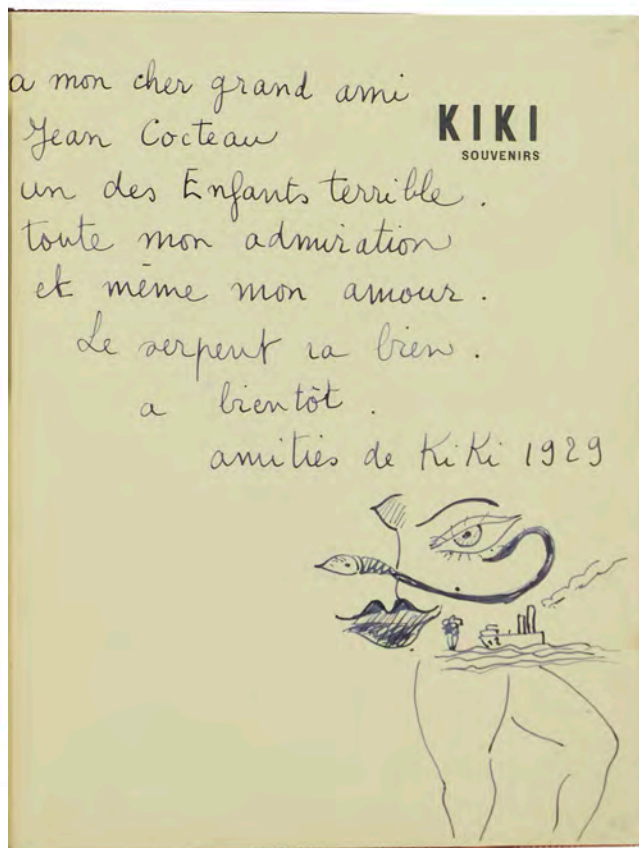 a mon cher grand ami
KIKI
SOUVENIRS
Jean Cocteau
un des Enfants terrible.
toute mon admiration
et même mon amour.
Le serpent va bien.
a bientôt.
amitiés de KiKi 1929